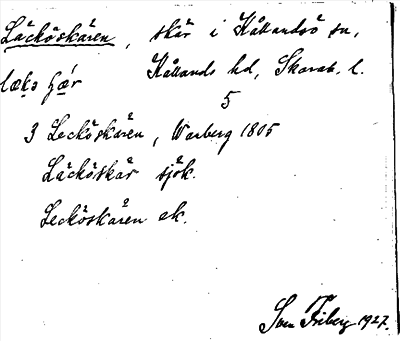 Läcköskären, skär i Kållandsö sn,
Kållands hd, Skarab. l.
læks ʃæ̣r
5
3 Lecköskären, Warberg 1805
Läcköskär sjök.
Lecköskären ek.
Sven Friberg 1927.